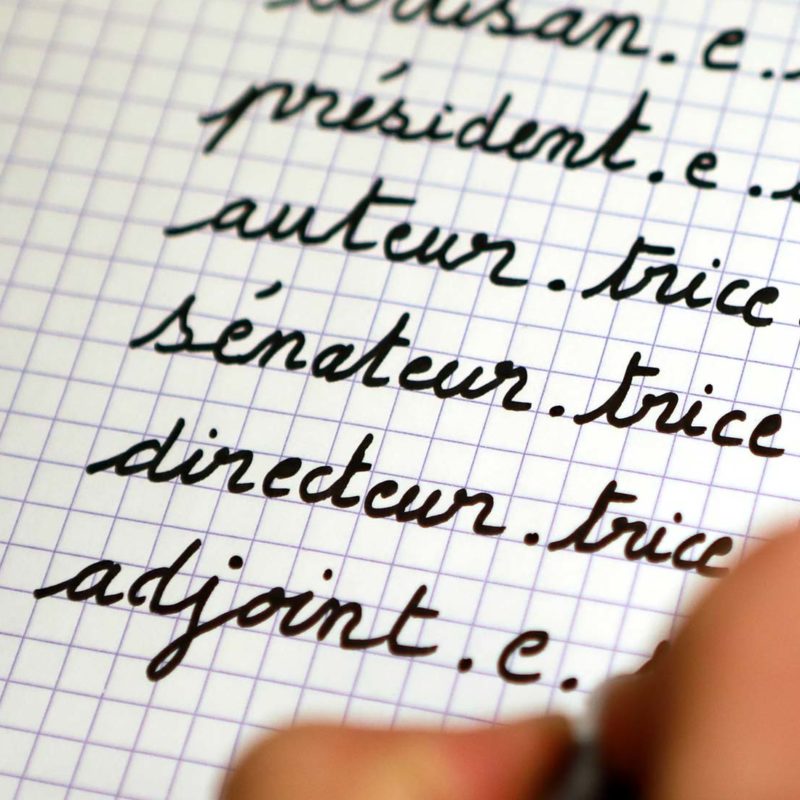 artisan.e.
président.e.
auteur.trice
sénateur.trice
directeur.trice
adjoint.e.